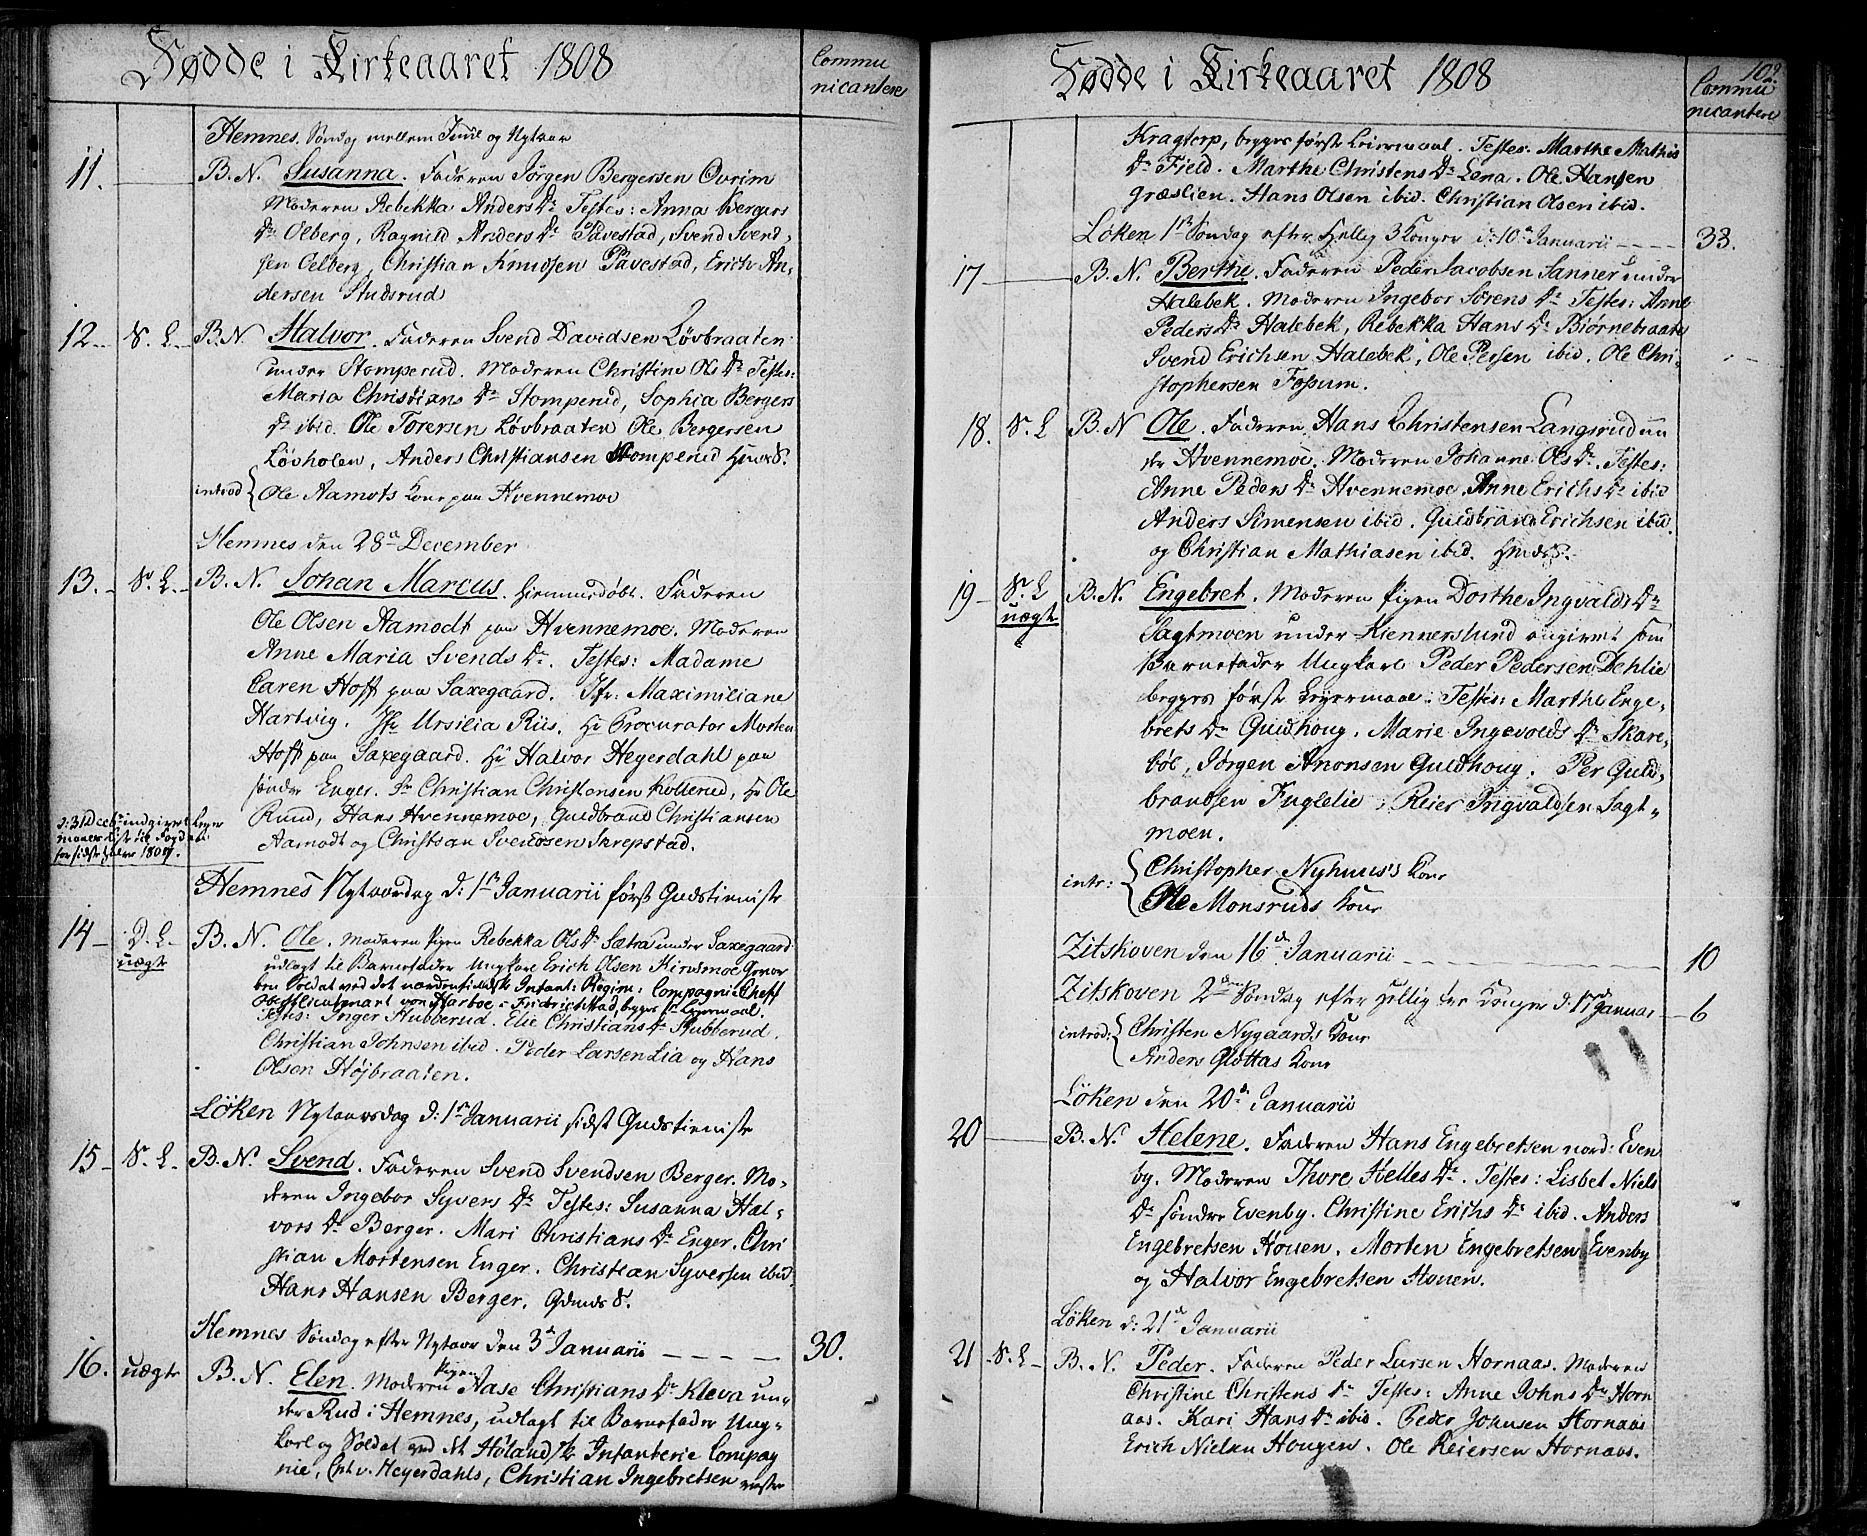 Fødde i Kirkeaaret 1808
Commu
nicantere
Hemnes. Søndag mellem Juul og Nytaar
11. B. N. Susanna. Faderen Jørgen Bergersen Ovrim
Moderen Rebekka Anders Dr Testes: Anna Bergers
Dr Olberg, Ragnild Anders Dr Tavestad, Svend Svend-
sen Oelberg, Christian Knudsen Tavestad, Erich An-
dersen Studsrud
12. S. L. B. N. Halvor. Faderen Svend Davidsen Løvbraaten
under Stomperud. Moderen Christine Ols Dr Testes:
Maria Christians Dr Stomperud, Sophia Bergers
Dr ibid. Ole Torersen Løvbraaten Ole Bergersen
Løvholen, Anders Christiansen Stomperud
introd { Ole Aamots Kone paa Hvennemoe
Hemnes den 28de December
13. S. L. B. N. Johan Marcus. Hiemmedøbt. Faderen
Ole Olsen Aamodt paa Hvennemoe. Moderen
Anne Maria Svends Dr. Testes: Madame
Caren Hoff paa Saxegaard. Jfr: Maximiliane
Hartvig. Jfr Ursilia Riis. Hr Procurator Morten
Hoff paa Saxegaard. Hr Halvor Hegerdahl paa
søndre Enger. Sr Christian Christensen Kollerud, Hr Ole
Rund, Hans Hvennemoe, Guldbrand Christiansen
Aamodt og Christian Svendsen Skrepstad.
d: 31 Dceb: indgivet
for sidste halve 1807.
Hemnes Nytaarsdag d: 1ste Januarii først Gudstieniste
14 D. L. uægte B. N. Ole. Moderen Pigen Rebekka Ols Dr Sætra under Saxegaard
udlagt til Barnefader Ungkarl Erich Olsen Kinsmoe
ben Soldat ved det nordenfieldske Infant: Regim: Compagnie Cheff
Obristlieutenant von Harboe i Fridrichstad, begges 1ste Leiermaal.
Testes: Inger Hubberud. Elie Christians Dr Hubberud.
Christian Johnsen ibid. Peder Larsen Lia og Hans
Olsen Højbraaten.
Löken Nytaarsdag d: 1ste Januarii sidst Gudstieniste
15 S. L. B. N. Svend. Faderen Svend Svendsen Berger. Mo-
deren Ingebor Syvers Dr Testes: Susanna Hal-
vors Dr Berger. Mari Christians Dr Enger. Chri
stian Mortensen Enger. Christian Syversen ibid,
Hans Hansen Berger.
Hemnes Søndag efter Nytaar den 3de Januarii 30.
16. uægte B. N. Elen. Moderen Pigen Aase Christians Dr Kleva un-
der Rud i Hemnes, udlagt til Barnefader Ung-
karl og Soldat ved det Hølandske Infanterie Compag
nie, Cpt. v. Heyerdahls, Christian Ingebretsen
Fødde i Kirkeaaret 1808
102.
Commu
nicantere
Kragtorp, begges første Leiermaal. Testes: Marthe Mathis
Dr Field. Marthe Christens Dr Lena. Ole Hansen
Græslien. Hans Olsen ibid. Christian Olsen ibid.
Löken 1ste Søndag efter Hellig 3 Konger d: 10de Januarii 33.
17 B. N. Berthe. Faderen Peder Jacobsen Sanner under
Halebek. Moderen Ingebor Sørens Dr Testes: Anne
Peders Dr Halebek, Rebekka Hans Dr Biørnebraate
Svend Erichsen Halebek, Ole Persen ibid. Ole Chri-
stophersen Fossum.
18. S. L B. N Ole. Faderen Hans Christensen Langsrud un
der Hvennemoe. Moderen Johanne Ols Dr. Testes:
Anne Peders Dr Hvennemoe, Anne Erichs Dr ibid
Anders Simensen ibid. Guldbrand Erichsen ibid
og Christian Mathiasen ibid.
19 S. L uægte B. N. Engebret. Moderen Pigen Dorthe Ingvalds Dr
Sagtmoen under Kiennerslund angivet som
Barnefader Ungkarl Peder Pedersen Dehlie
begges første Leyermaal. Testes: Marthe Enge-
brets Dr Guldhoug. Marie Ingevolds Dr Skare-
böl, Jörgen Anonsen Guldhoug. Per Guld-
brandsen Fuglelie. Reier Ingvaldsen Sagt-
moen.
intr: { Christopher Nyhuus's Kone
Ole Monsruds Kone
Zitskoven den 16de Januarii 10
Zitskoven 2den Søndag efter Hellig tre Konger d: 17de Januar 6
introd: { Christen Nygaards Kone
Anders Glottas Kone
Löken den 20de Januarii
20 B. N. Helene. Faderen Hans Engebretsen nord: Even
by. Moderen Thore Helles Dr. Testes: Lisbet Niels
Dr søndre Evenby. Christine Erichs Dr ibid. Anders
Engebretsen Houen. Morten Engebretsen Evenby
og Halvor Engebretsen Houen.
Löken d: 21de Januarii
21 S. L B. N. Peder. Faderen Peder Larsen Hornaas. Moderen
Christine Christens Dr Testes: Anne Johns Dr Horn
aas. Kari Hans Dr ibid. Peder Johnsen Hornaas
Erich Nielsen Hougen. Ole Reiersen Hornaas.